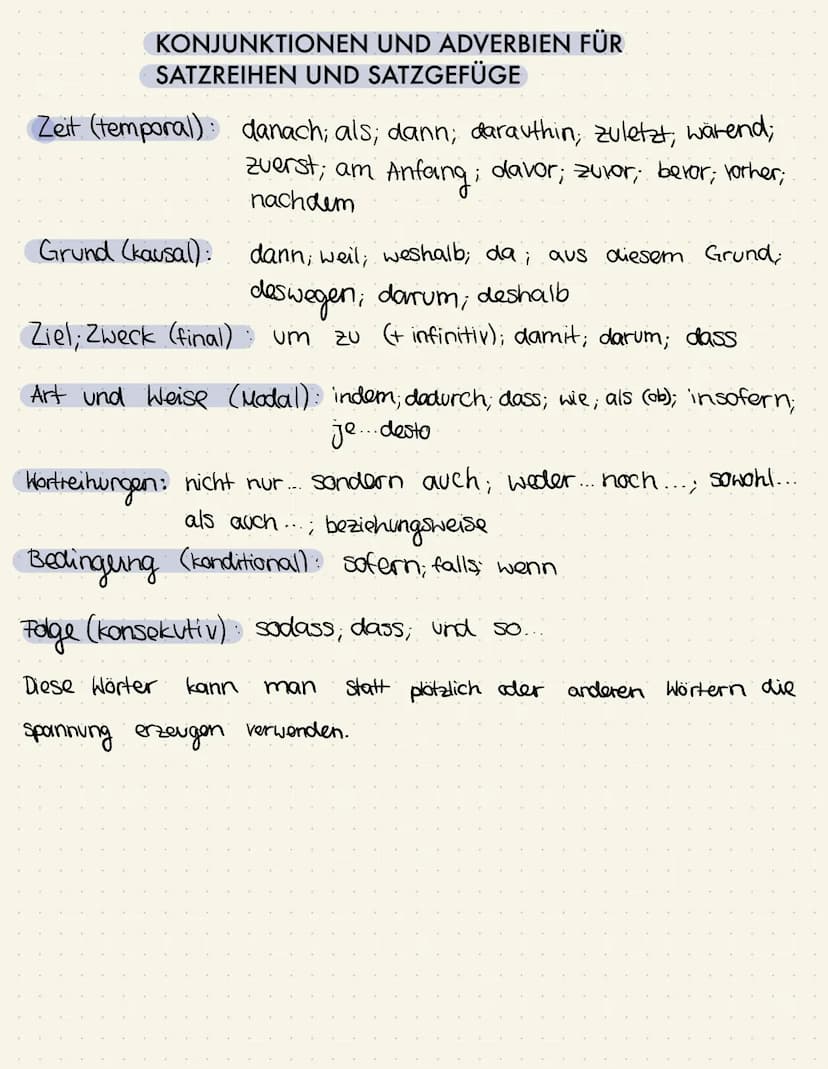 KONJUNKTIONEN UND ADVERBIEN FÜR
SATZREIHEN UND SATZGEFÜGE
Zeit (temporal): danach; als; dann; daraufhin; zuletzt; wärend;
zuerst; am Anfang; davor; zuvor; bevor; vorher;
nachdem
Grund (kausal): dann; weil; weshalb; da; aus diesem Grund;
deswegen; darum; deshalb
Ziel; Zweck (final): um zu (+ infinitiv); damit; darum; dass
Art und Weise (Modal): indem; dadurch; dass; wie; als (ob); insofern;
je...desto
Wortreihungen: nicht nur... sondern auch; weder... noch...; sowohl...
als auch...; beziehungsweise
Bedingung (konditional): sofern; falls; wenn
Folge (konsekutiv): sodass; dass; und so...
Diese Wörter kann man statt plötzlich oder anderen Wörtern die
spannung erzeugen verwenden.